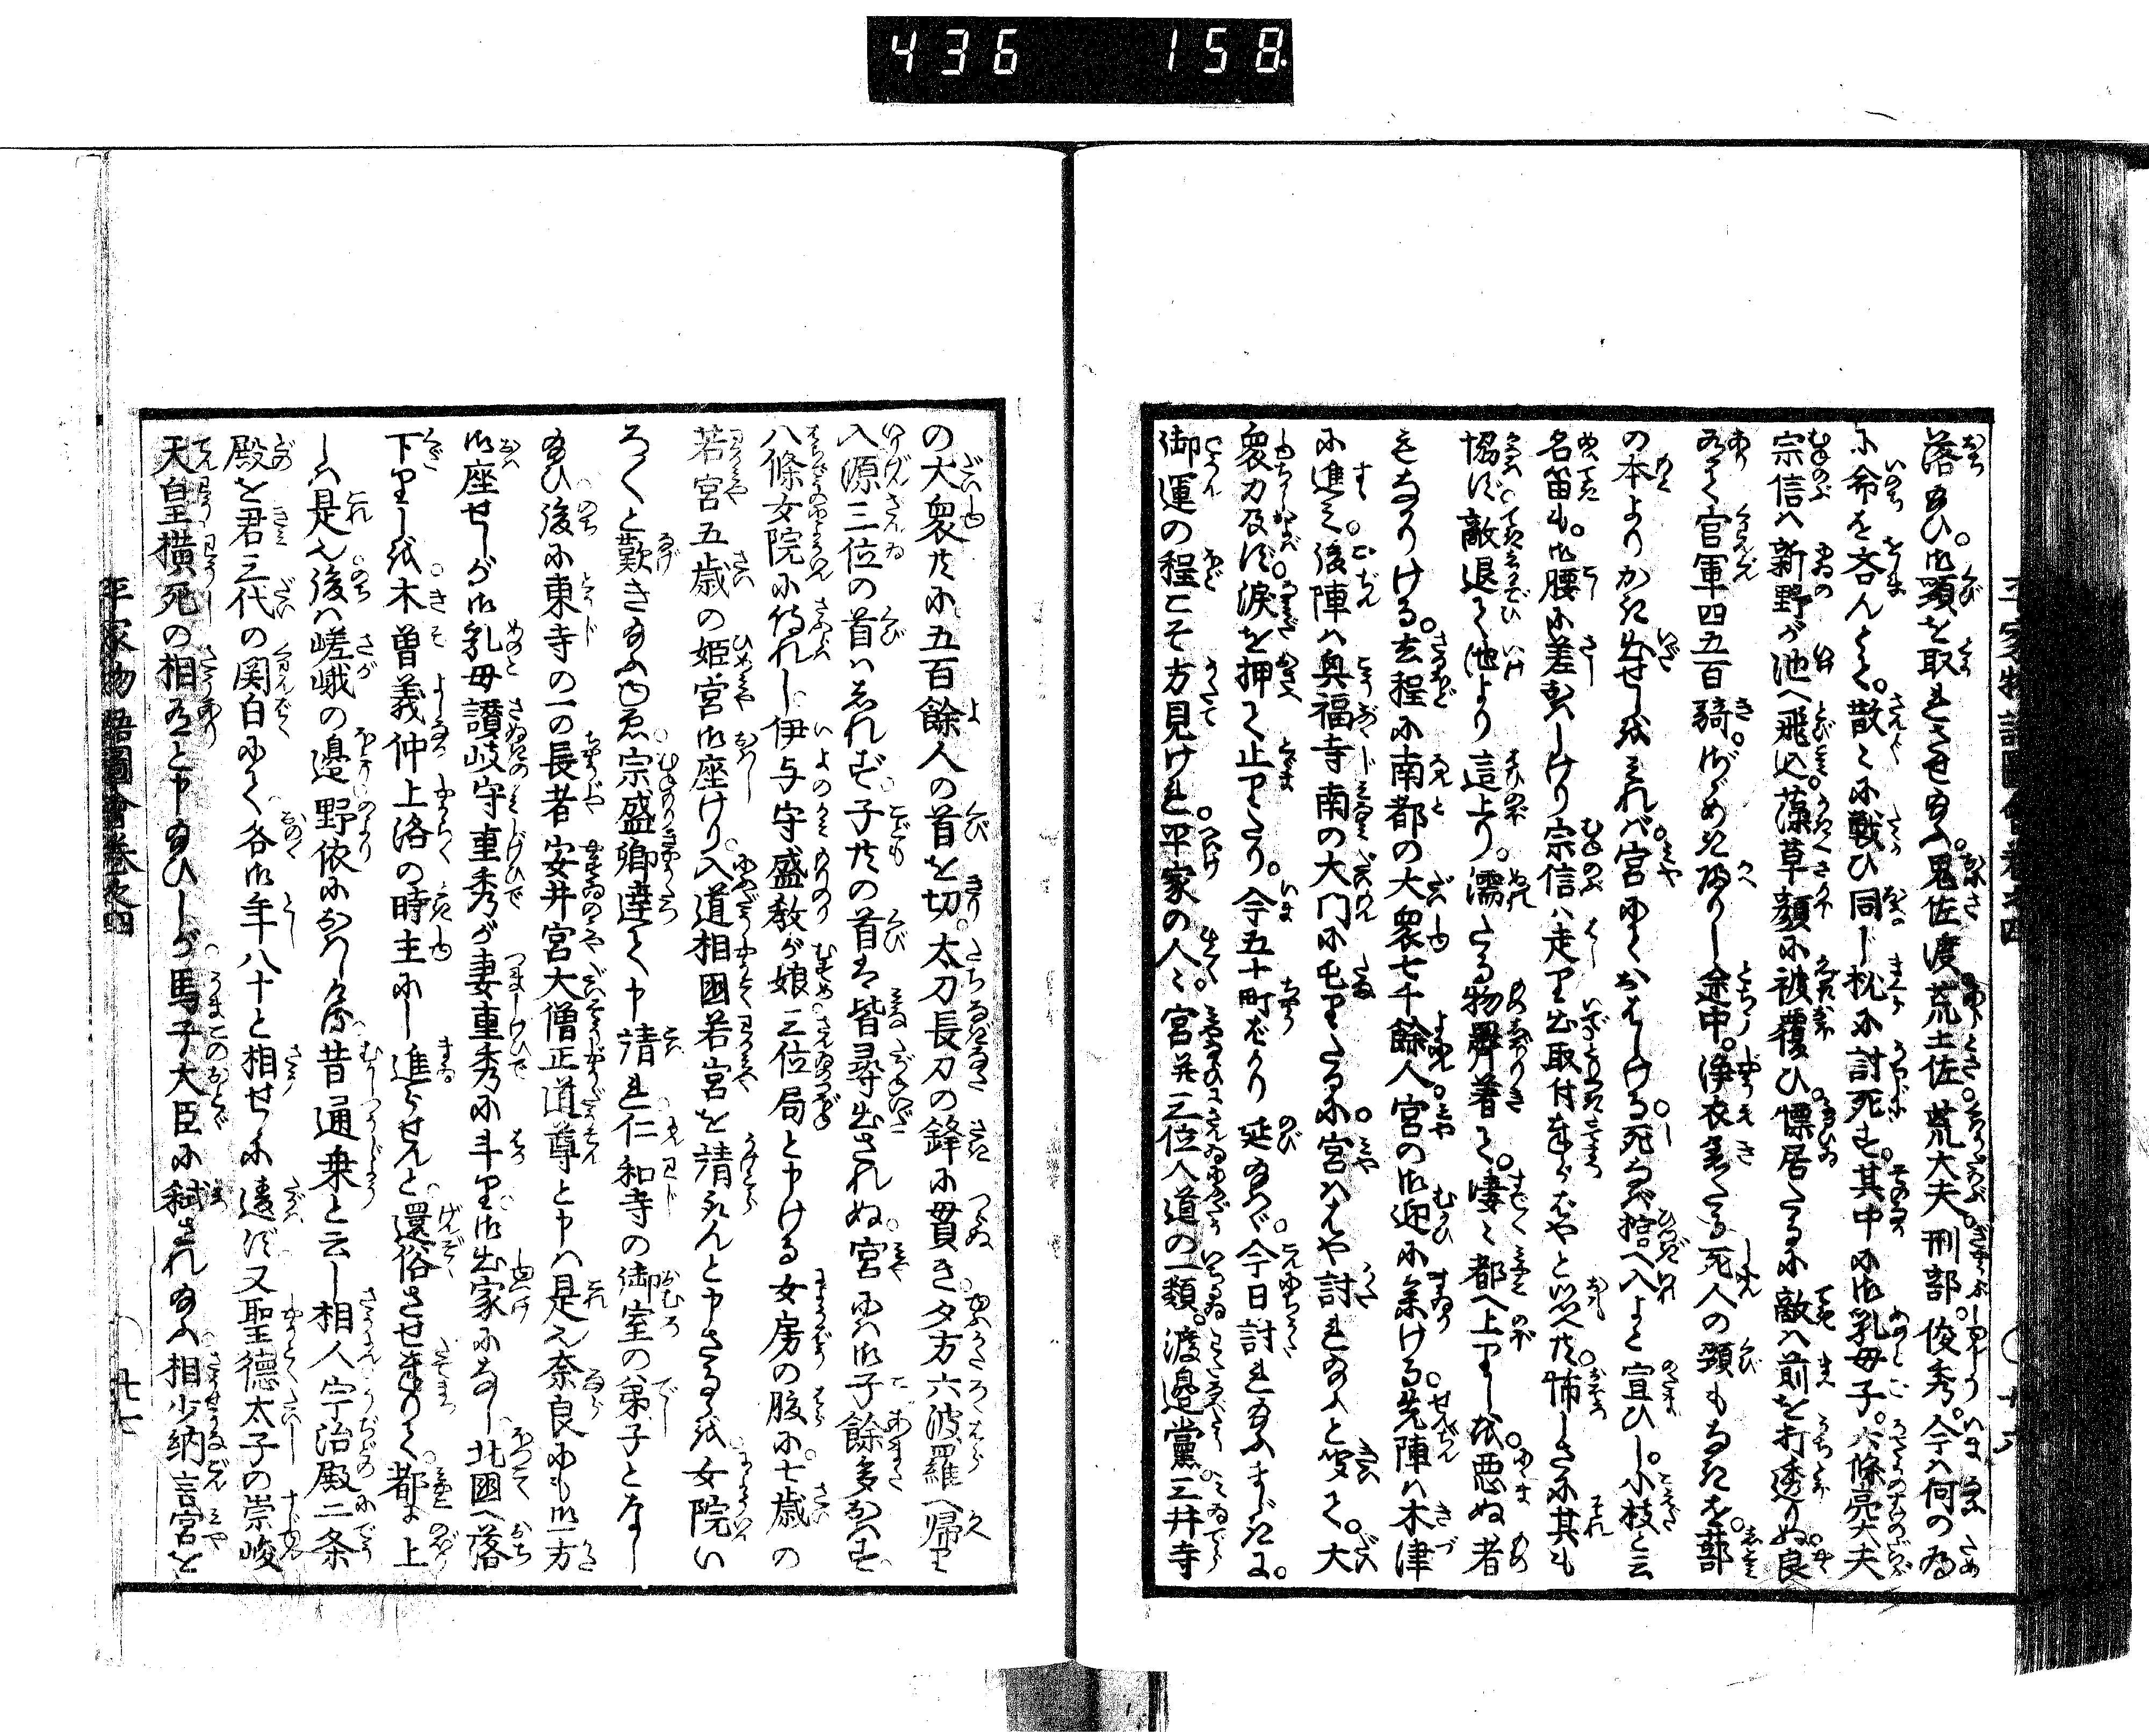 436 158
落給ひ。御頸を取れさせ給ふ。鬼佐渡。荒土佐。荒大夫。刑部。俊秀。今ハ何の為
に命を吝んとて。散々に戦ひ同じ枕に討死す。其中に御乳母子。六條亮大夫
宗信ハ新野が池へ飛込。藻草顔に被覆ひ。慓居たるに敵ハ前を打透りぬ。良
ありて官軍四五百騎。ざゞめき帰りし途中。浄衣着たる死人の頸もなきを。蔀
の本よりかき出せしを見れバ。宮にておはしける。死なバ棺へ入よと宣ひし。小枝と云
名笛も。御腰に差れしけり宗信ハ走り出取付奉らばやと思へ共。怖しさに其も
協ハず。敵退て池より這上り。濡たる物癖着て。凄々都へ上りしを。悪ぬ者
もなかりける。去程に南都の大衆七千餘人。宮の御迎に参ける。先陣ハ木津
に進ミ。後陣ハ興福寺南の大門に屯りたるに。宮ハはや討れ給ふと聞て。大
衆力及バず。涙を押て止りたり。今五十町ばかり延給ハゞ。今日討れ給ふまじきに。
御運の程こそ方見けれ。平家の人々。宮并三位入道の一類。渡邉黨三井寺
の大衆共に。五百餘人の首を切。太刀長刀の鋒に貫き。夕方六波羅へ帰り
入。源三位の首ハしれず。子共の首は皆尋出されぬ。宮にハ御子餘多おハす。
八條女院に侍れし。伊与守盛教が娘。三位局と申ける女房の腹に。七歳の
若宮五歳の姫宮御座けり。入道相國若宮を請取んと申さるゝを。女院い
ろ〳〵と歎き給ふゆゑ。宗盛卿達て申請れ。仁和寺の御室の弟子となし
給ひ。後に東寺の一の長者安井宮大僧正道尊と申ハ是也。奈良にも御一方
御座せしが御乳母讃岐守重秀が妻重秀に斗り。御出家になし。北國へ落
下りしを。木曽義仲上洛の時主にし進らせんと。還俗させ奉りて。都に上
しハ是也。後ハ嵯峨の邉野依におハしける。昔通乗と云し相人宇治殿二条
殿を君三代の関白にて。各御年八十と相せしに違ハず。又聖徳太子の崇峻
天皇横死の相有と申給ひしが。馬子大臣に弑され給ふ。相少納言宮を
平家物語圖會巻之四
廿七